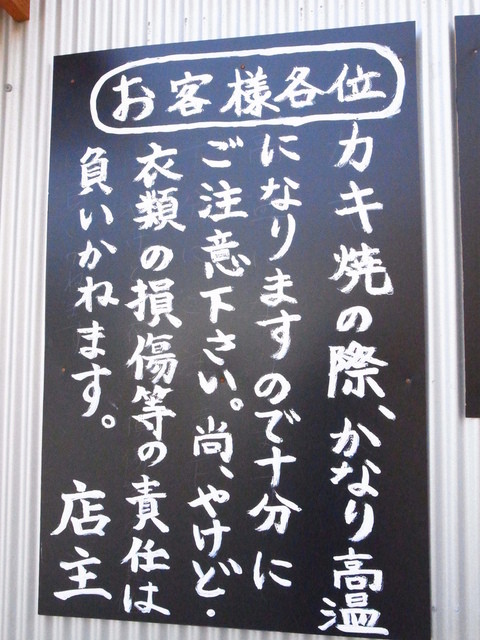 お客様各位
カキ焼の際、かなり高温
になりますので十分に
ご注意下さい。尚、やけど・
衣類の損傷等の責任は
負いかねます。
店主